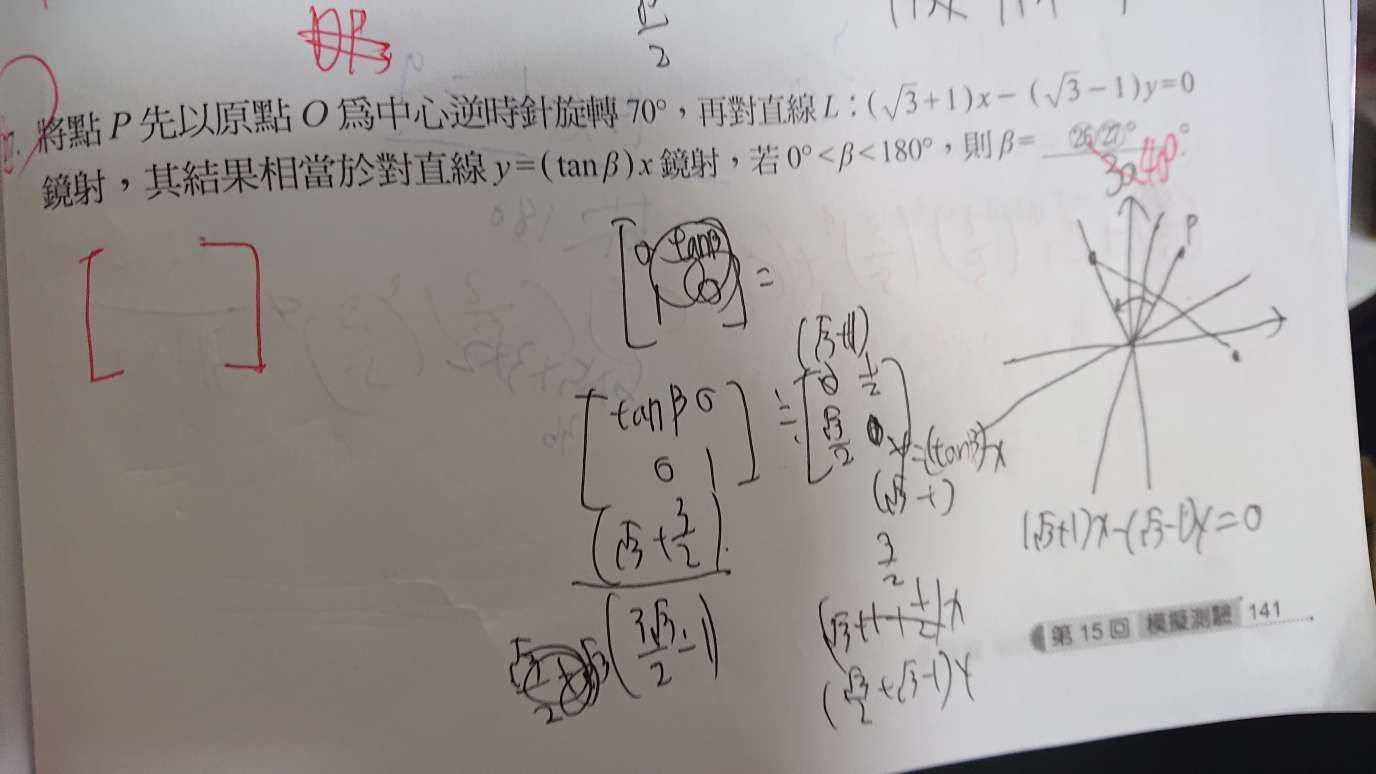 √3/2
將點P先以原點O為中心逆時針旋轉70°，再對直線L：(√3+1)x−(√3−1)y=0
鏡射，其結果相當於對直線y=(tanβ)x鏡射，若0°<β<180°，則β= ㉖㉗°
30 40°
P
[0 tanβ
1 0] =
(√3+1)
[tanβ 0
0 1]
=
[0 1/2
√3/2 0]
y=(tanβ)x
(√3+3/2)
(√3-1)
3/2
(√3+1)x-(√3-1)y=0
(3√3/2-1)
(√3+1+1/2)x
(√3/2+√3-1)y
第15回 模擬測驗 141